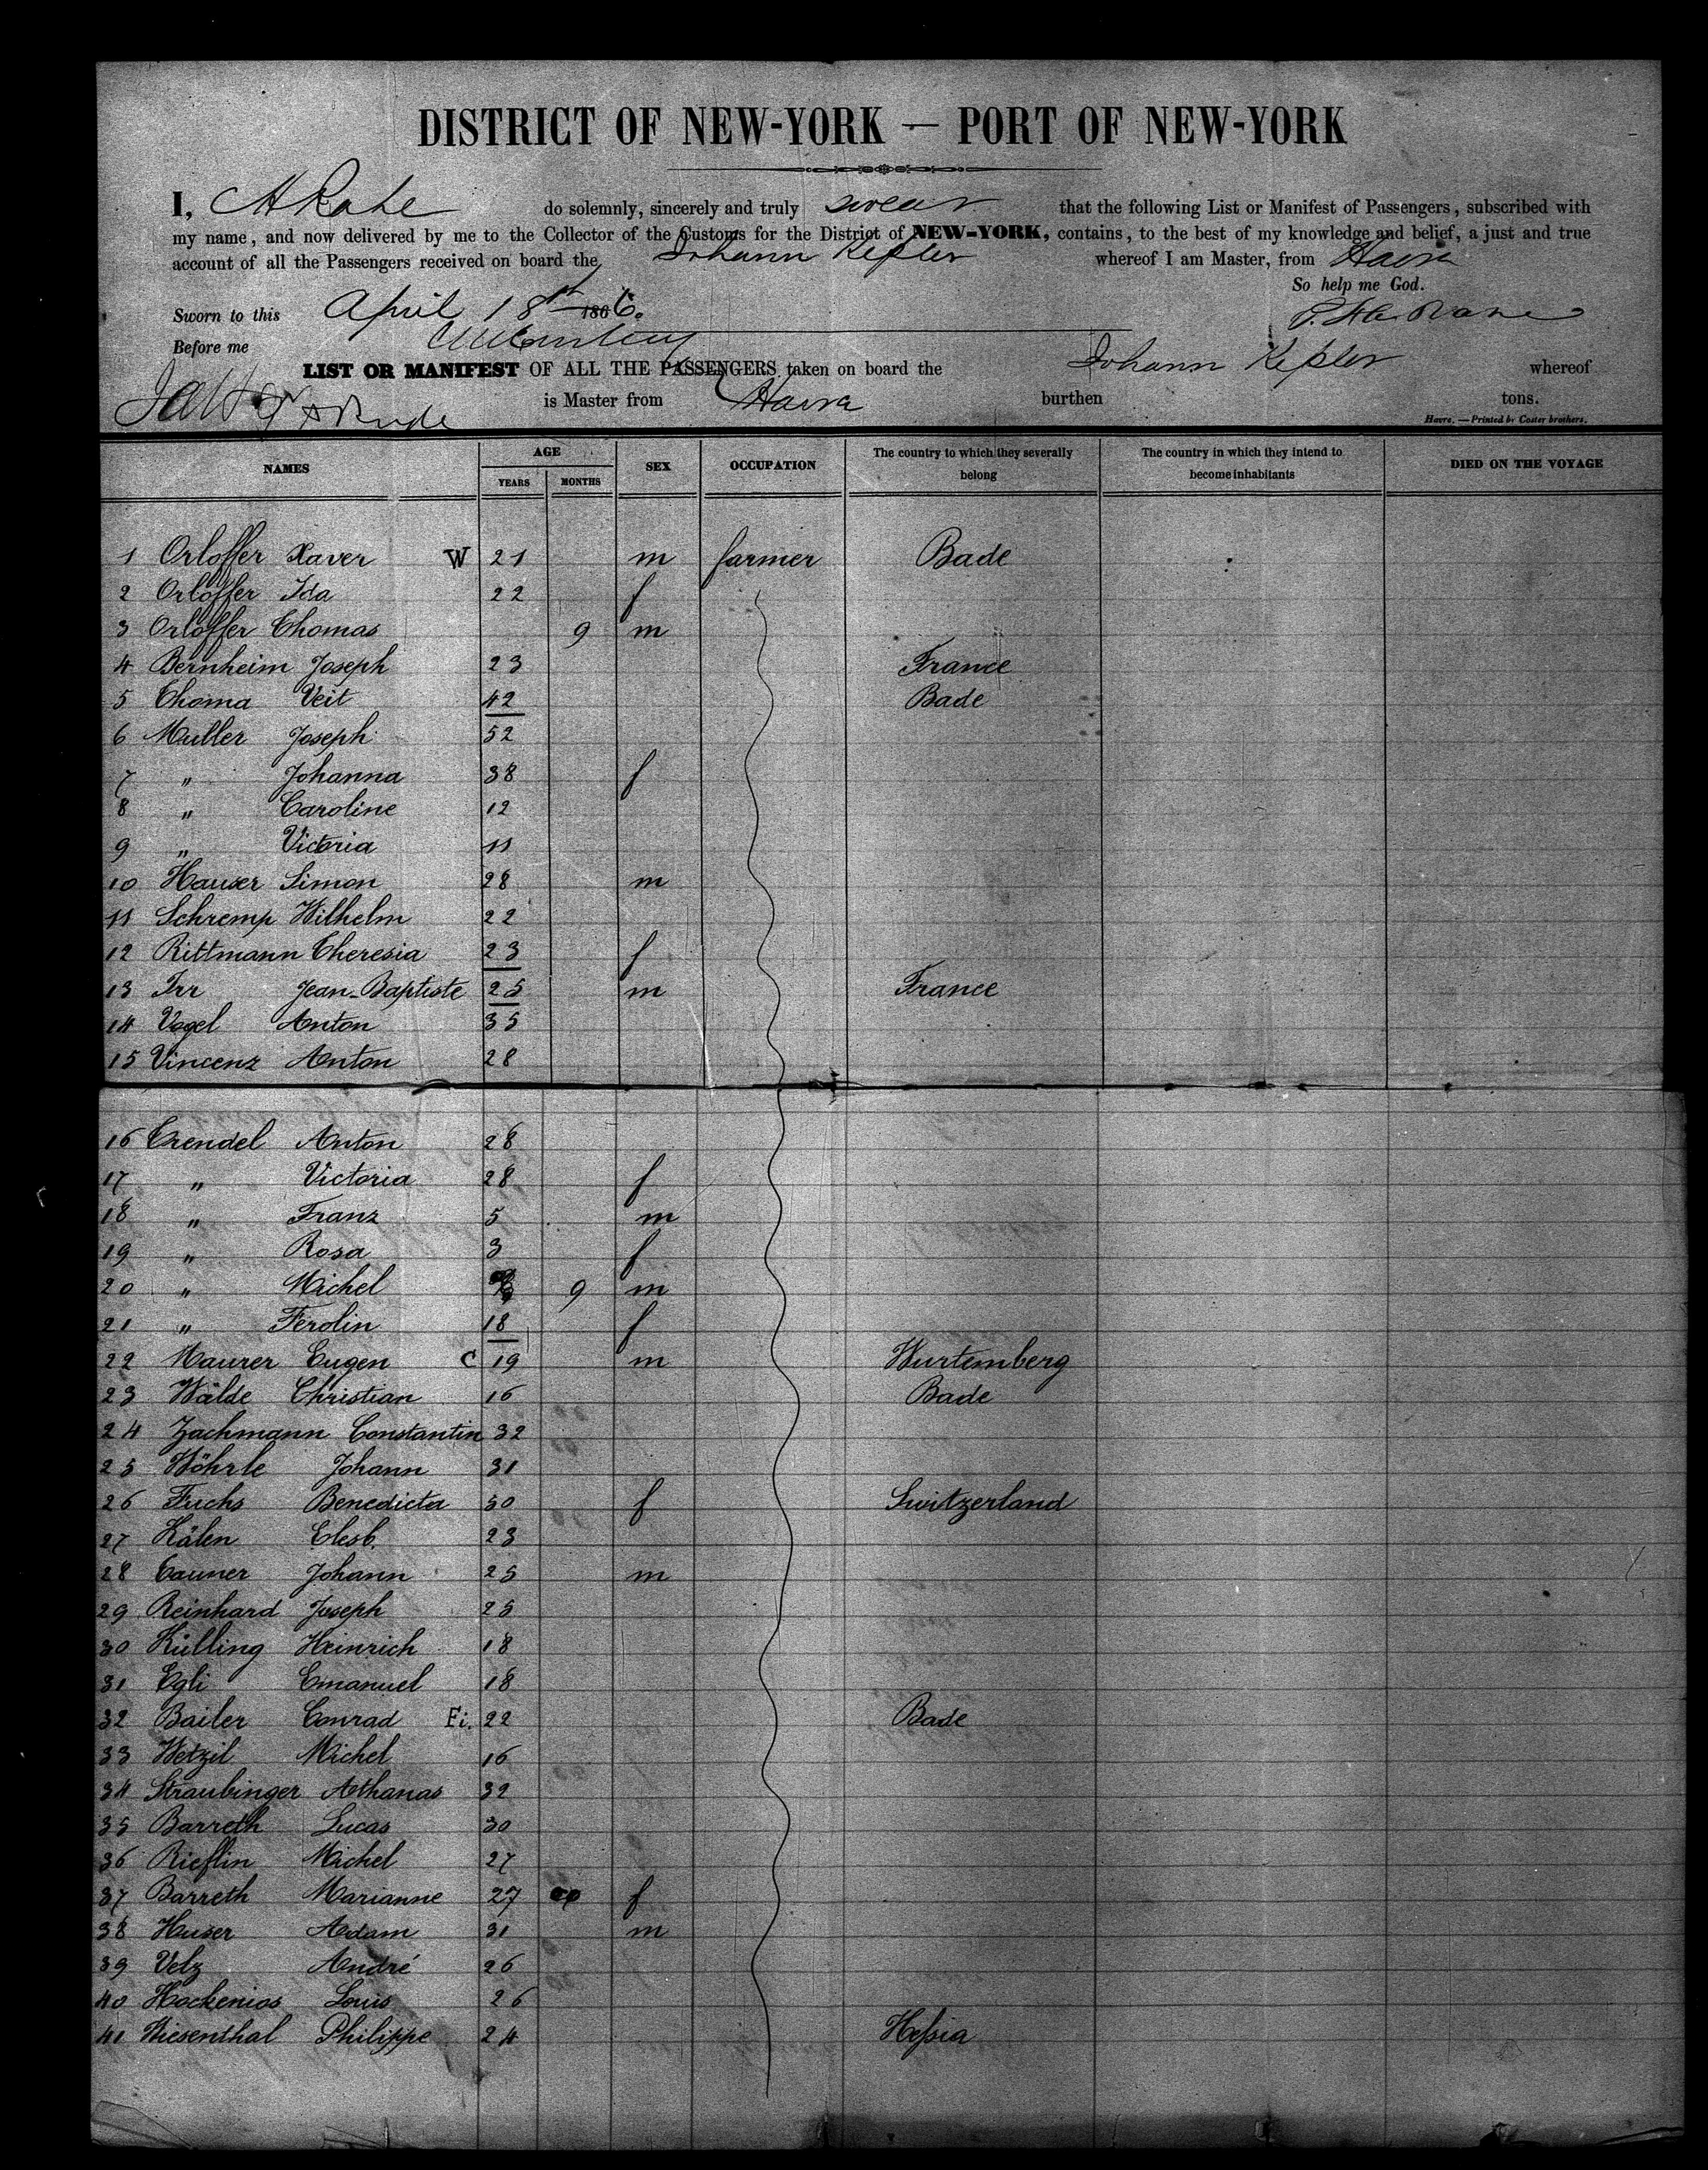 DISTRICT OF NEW-YORK — PORT OF NEW-YORK
I, do solemnly, sincerely and truly swear that the following List or Manifest of Passengers, subscribed with
my name, and now delivered by me to the Collector of the Customs for the District of NEW-YORK, contains, to the best of my knowledge and belief, a just and true
account of all the Passengers received on board the Johann Kepler whereof I am Master, from Havre
So help me God.
Sworn to this April 18th 1866.
Before me
LIST OR MANIFEST OF ALL THE PASSENGERS taken on board the Johann Kepler whereof
is Master from Havre burthen tons.
Havre. — Printed by Coster brothers.
NAMES AGE YEARS MONTHS SEX OCCUPATION The country to which they severally belong The country in which they intend to become inhabitants DIED ON THE VOYAGE
1 Orloffer Xaver W 21 m farmer Bade
2 Orloffer Ida 22 f
3 Orloffer Thomas 9 m
4 Bernheim Joseph 23 France
5 Thoma Veit 42 Bade
6 Muller Joseph 52
7 " Johanna 38 f
8 " Caroline 12
9 " Victoria 11
10 Hauser Simon 28 m
11 Schremp Wilhelm 22
12 Rittmann Theresia 23 f
13 Irr Jean-Baptiste 25 m France
14 Vogel Anton 35
15 Vincenz Anton 28
16 Trendel Anton 28
17 " Victoria 28 f
18 " Franz 5 m
19 " Rosa 3 f
20 " Michel 9 m
21 " Ferolin 18 f
22 Maurer Eugen C 19 m Wurtemberg
23 Wälde Christian 16 Bade
24 Zachmann Constantin 32
25 Wöhrle Johann 31
26 Fuchs Benedicta 50 f Switzerland
27 Kälen Elesb. 23
28 Tauner Johann 25 m
29 Reinhard Joseph 25
30 Külling Heinrich 18
31 Egli Emanuel 18
32 Bailer Conrad Fi. 22 Bade
33 Wetzil Michel 16
34 Straubinger Athanas 32
35 Barreth Lucas 30
36 Rieflin Michel 27
37 Barreth Marianne 27 f
38 Huser Adam 31 m
39 Velz André 26
40 Hockenios Louis 26
41 Wiesenthal Philippe 24 Hessia